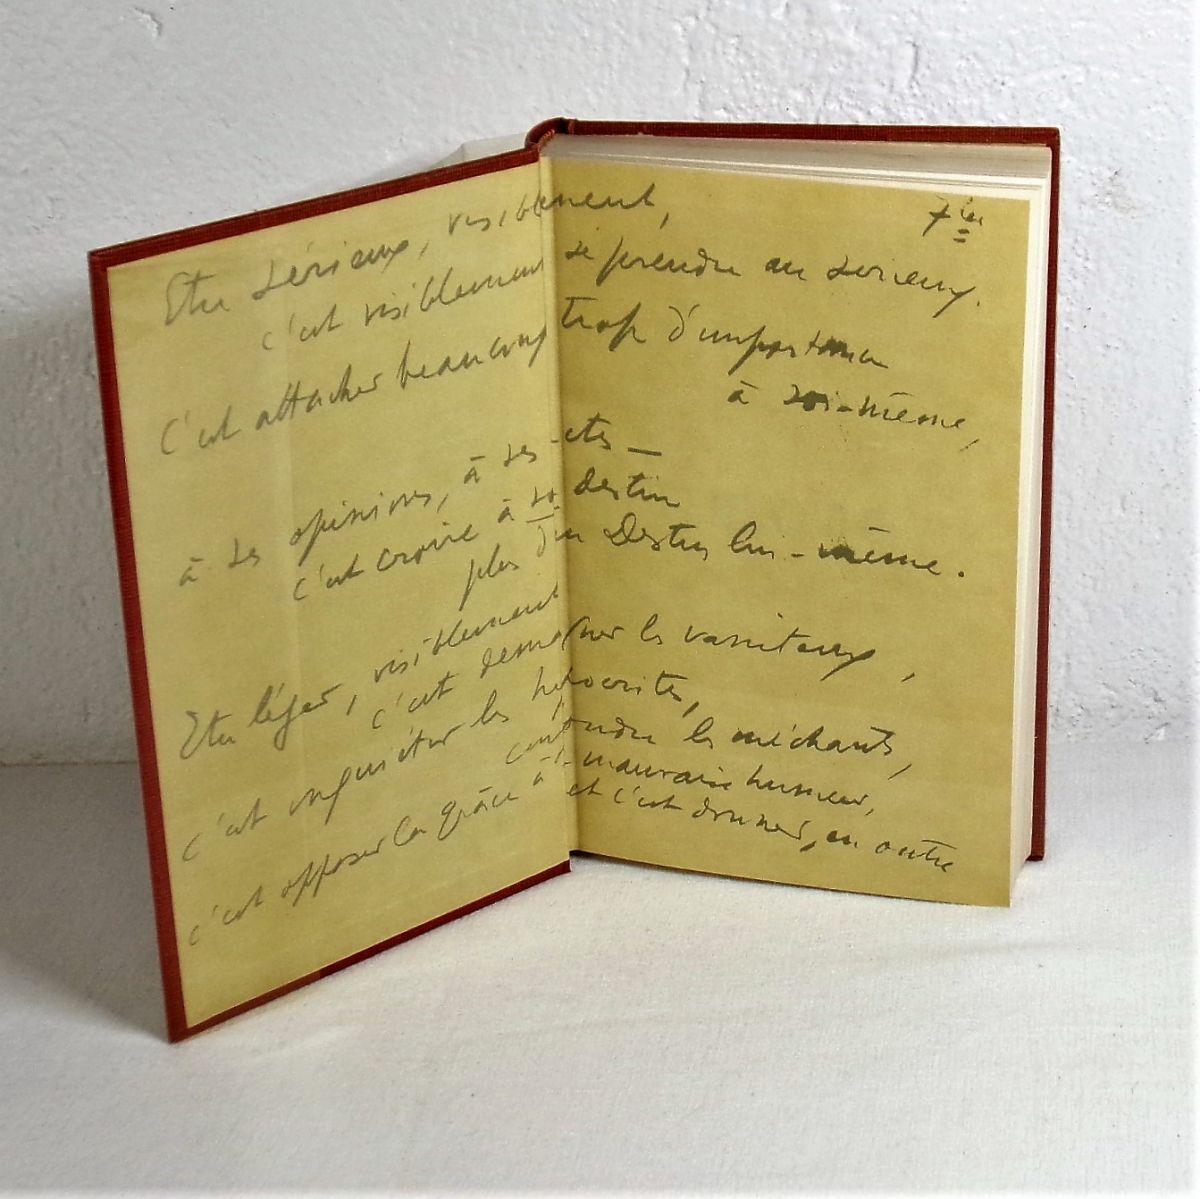 7 ier
Etre sérieux, visiblement,
c'est visiblement se prendre au sérieux.
C'est attacher beaucoup trop d'importance
à soi-même,
à ses opinions, à ses actes —
c'est croire à son destin
plus qu'au Destin lui-même.
Etre léger, visiblement
c'est démasquer les vaniteux,
c'est inquiéter les hypocrites,
confondre les méchants,
c'est opposer la grâce à la mauvaise humeur,
et c'est donner, en outre